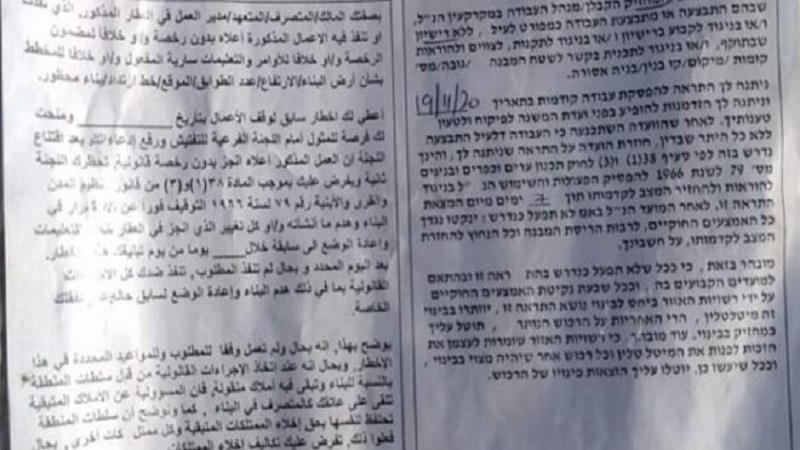 שבהם התבצעה או מתבצעת העבודה כמפורט לעיל, ללא רישיון
ו/או בניגוד לקבוע ברישיון ו/או בניגוד לתקנות, לצווים ולהוראות
שבתוקף, ו/או בניגוד לתכנית בקשר לשטח המבנה /גובה/מס'
קומות /מיקום/קו בנין/בניה אסורה.
ניתנה לך התראה להפסקת עבודה קודמות בתאריך 19/11/20
וניתנה לך הזדמנות להופיע בפני ועדת המשנה לפיקוח ולטעון
טענותיך. לאחר שהוועדה השתכנעה כי העבודה דלעיל התבצעה
ללא כל היתר שבדין, חוזרת הועדה על התראה שניתנה לך, והינך
נדרש בזה לפי סעיף 38(1) ו(3) לחוק תכנון ערים וכפרים ובנינים
מס' 79 לשנת 1966 להפסיק הפעולות והשימוש הנ"ל בניגוד
להוראות ולהחזיר המצב לקדמותו תוך 7 ימים מיום המצאת
התראה זו. לאחר המועד הנ"ל באם לא תפעל כנדרש: ינקטו נגדך
כל האמצעים החוקיים, לרבות הריסת המבנה וכל הנחוץ להחזרת
המצב לקדמותו, על חשבונך.
מובהר בזאת, כי ככל שלא תפעל כנדרש בהתראה זו ובהתאם
למועדים הקבועים בה, וככל שבעת נקיטת האמצעים החוקיים
על ידי רשויות האזור ביחס לבינוי נושא התראה זו, יוותרו בבינוי
מיטלטלין, הרי האחריות על הרכוש הנותר, תוטל עליך
כמחזיק בבינוי. עוד מובהר, כי רשויות האזור שומרות לעצמן את
הזכות לפנות את המיטלטלין וכל רכוש אחר שיהיה מצוי בבינוי,
וככל שיעשו כן, יוטלו עליך הוצאות פינויו של הרכוש.
بصفتك المالك/المتصرف/المتعهد/مدير العمل في العقار المذكور، الذي
او تنفذ فيه الاعمال المذكورة اعلاه بدون رخصة و/او خلافا لمضمون
الرخصة و/او خلافا للاوامر والتعليمات سارية المفعول و/او خلافا للمخطط
بشأن أرض البناء/الارتفاع/عدد الطوابق/الموقع/خط ارتداد/بناء محظور.
أعطي لك اخطار سابق لوقف الأعمال بتاريخ ________ ومنحت
لك فرصة للمثول أمام اللجنة الفرعية للتفتيش ورفع إدعاءاتك وبعد اقتناع
اللجنة ان العمل المذكور اعلاه انجز بدون رخصة قانونية, تحظرك اللجنة
ثانية ويفرض عليك بموجب المادة ٣٨(١)و(٣) من قانون تنظيم المدن
والقرى والأبنية رقم ٧٩ لسنة ١٩٦٦ التوقيف فورا عن
البناء وهدم ما أنشأته و/او كل تغيير الذي انجز في العقار للتعليمات
وإعادة الوضع الى سابقة خلال____ يوما من يوم تبليغك الاخطار.
بعد اليوم المحدد و بحال لم تنفذ المطلوب, تنفذ ضدك كل
القانونية بما في ذلك هدم البناء وإعادة الوضع لسابق حاله
الخاصة.
يوضح بهذا, انه بحال ولم تعمل وفقا للمطلوب وللمواعيد المحددة في هذا
الاخطار, وبحال انه عند اتخاذ الاجراءات القانونية من قبل سلطات المنطقة
بالنسبة للبناء وتبقى فيه أملاك منقولة, فان المسؤولية عن الاملاك المتبقية
تلقى على عاتقك كالمتصرف في البناء, كما ونوضح أن سلطات المنطقة
تحتفظ لنفسها بحق إخلاء الممتلكات المتبقية وكل أخرى, بحال
فعلوا ذلك, تفرض عليك تكاليف إخلاء الممتلكات